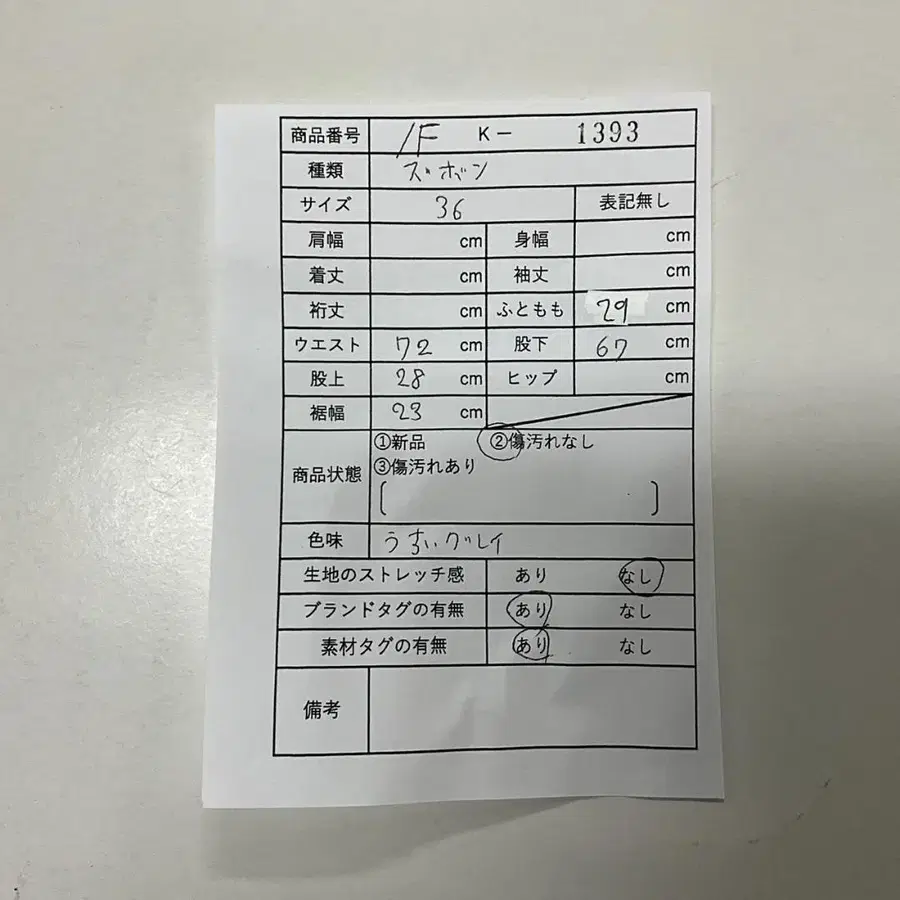 商品番号 1F K- 1393
種類 ズボン
サイズ 36 表記無し
肩幅 cm 身幅 cm
着丈 cm 袖丈 cm
裄丈 cm ふともも 29 cm
ウエスト 72 cm 股下 67 cm
股上 28 cm ヒップ cm
裾幅 23 cm
商品状態 ①新品 ②傷汚れなし
③傷汚れあり
[ ]
色味 うすいグレイ
生地のストレッチ感 あり なし
ブランドタグの有無 あり なし
素材タグの有無 あり なし
備考